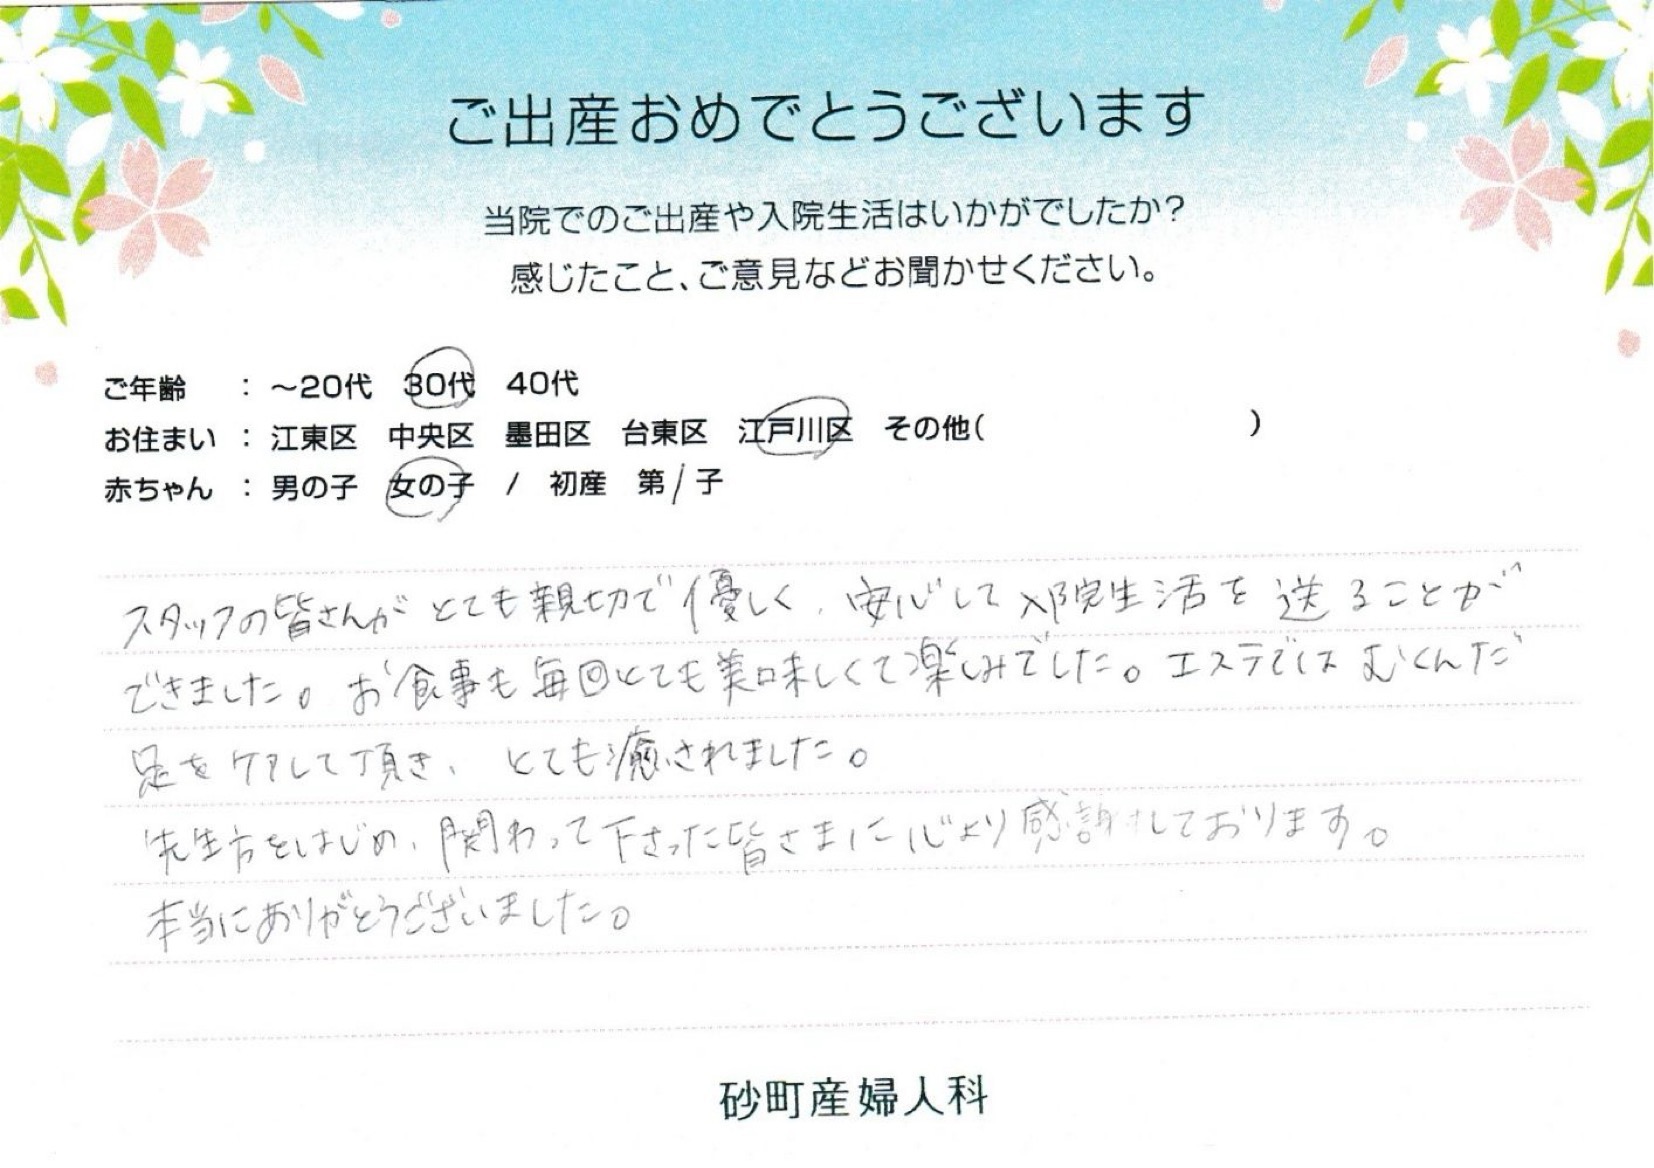 ご出産おめでとうございます
当院でのご出産や入院生活はいかがでしたか?
感じたこと、ご意見などお聞かせください。
ご年齢 : ～20代 30代 40代
お住まい : 江東区 中央区 墨田区 台東区 江戸川区 その他( )
赤ちゃん : 男の子 女の子 / 初産 第1子
スタッフの皆さんがとても親切で優しく、安心して入院生活を送ることが
できました。お食事も毎回とても美味しくて楽しみでした。エステではむくんだ
足をケアして頂き、とても癒されました。
先生方をはじめ、関わって下さった皆さまに心より感謝しております。
本当にありがとうございました。
砂町産婦人科